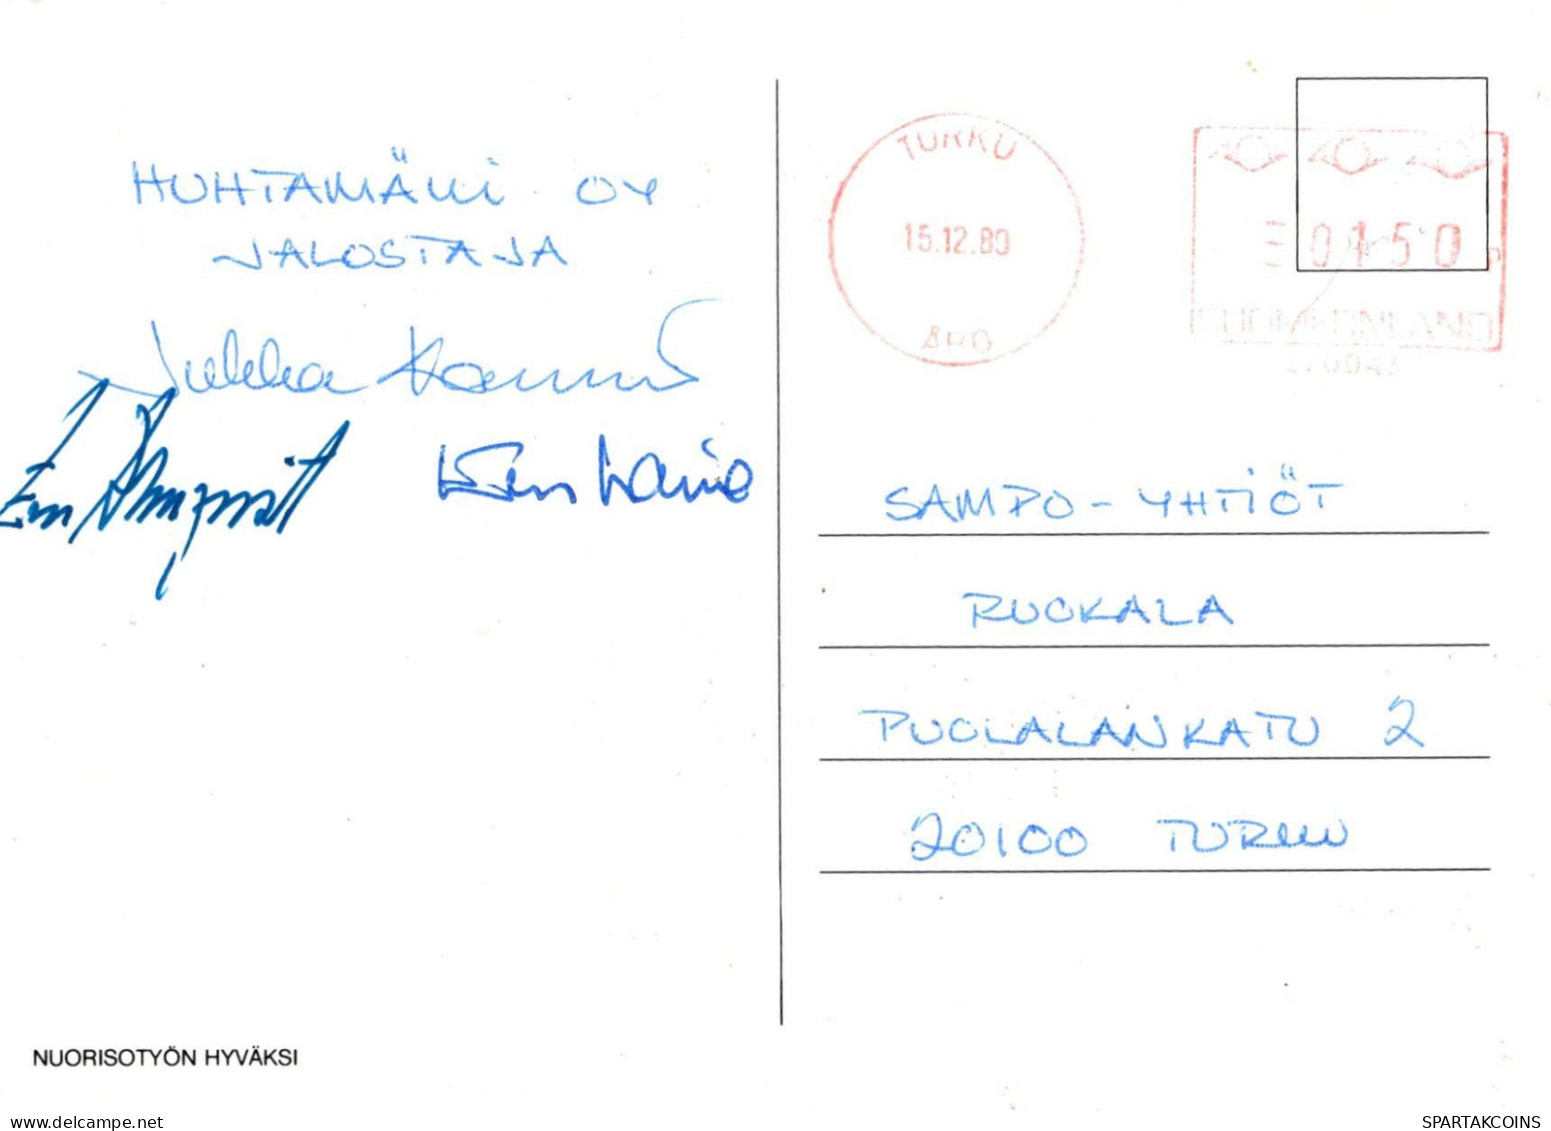 HUHTAMÄKI OY
JALOSTAJA
Jukka
TURKU
15.12.80
ÅBO
0150 P
SUOMI FINLAND
SAMPO-YHTIÖT
RUOKALA
PUOLALANKATU 2
20100 TURKU
NUORISOTYÖN HYVÄKSI
delcampe.net
SPARTAKCOINS